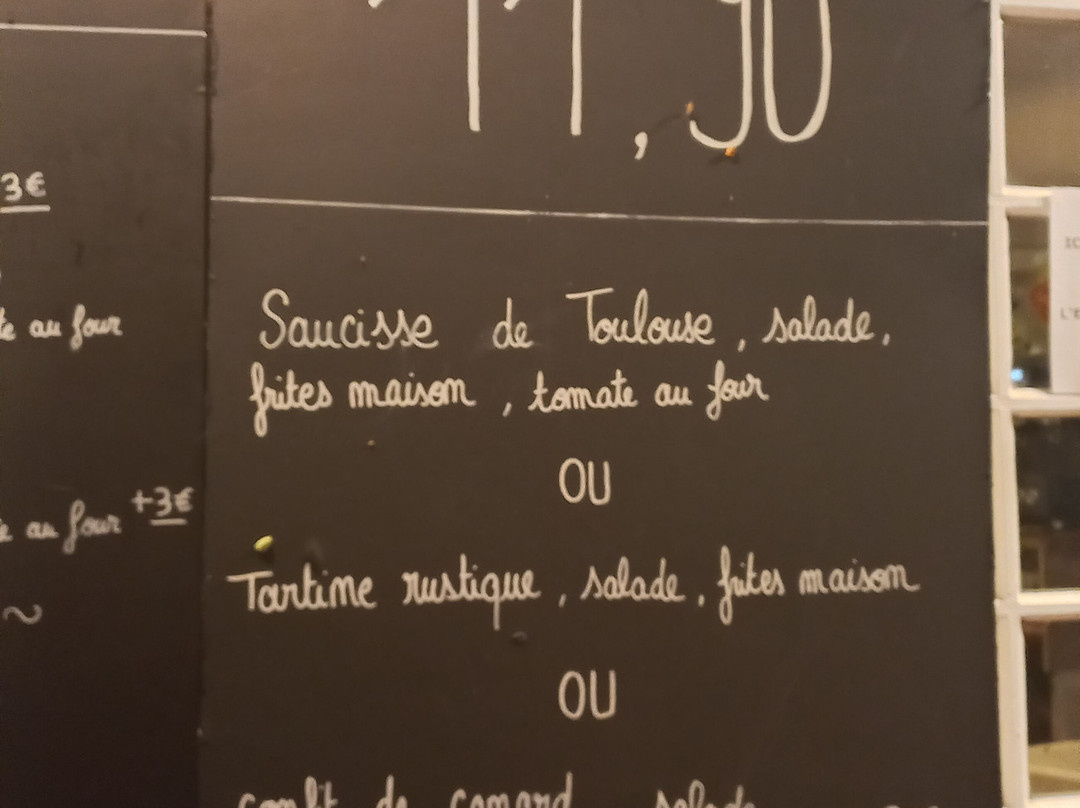 11,90
3€
au four
au four +3€
~
Saucisse de Toulouse, salade,
frites maison, tomate au four
OU
Tartine rustique, salade, frites maison
OU
confit de canard salade